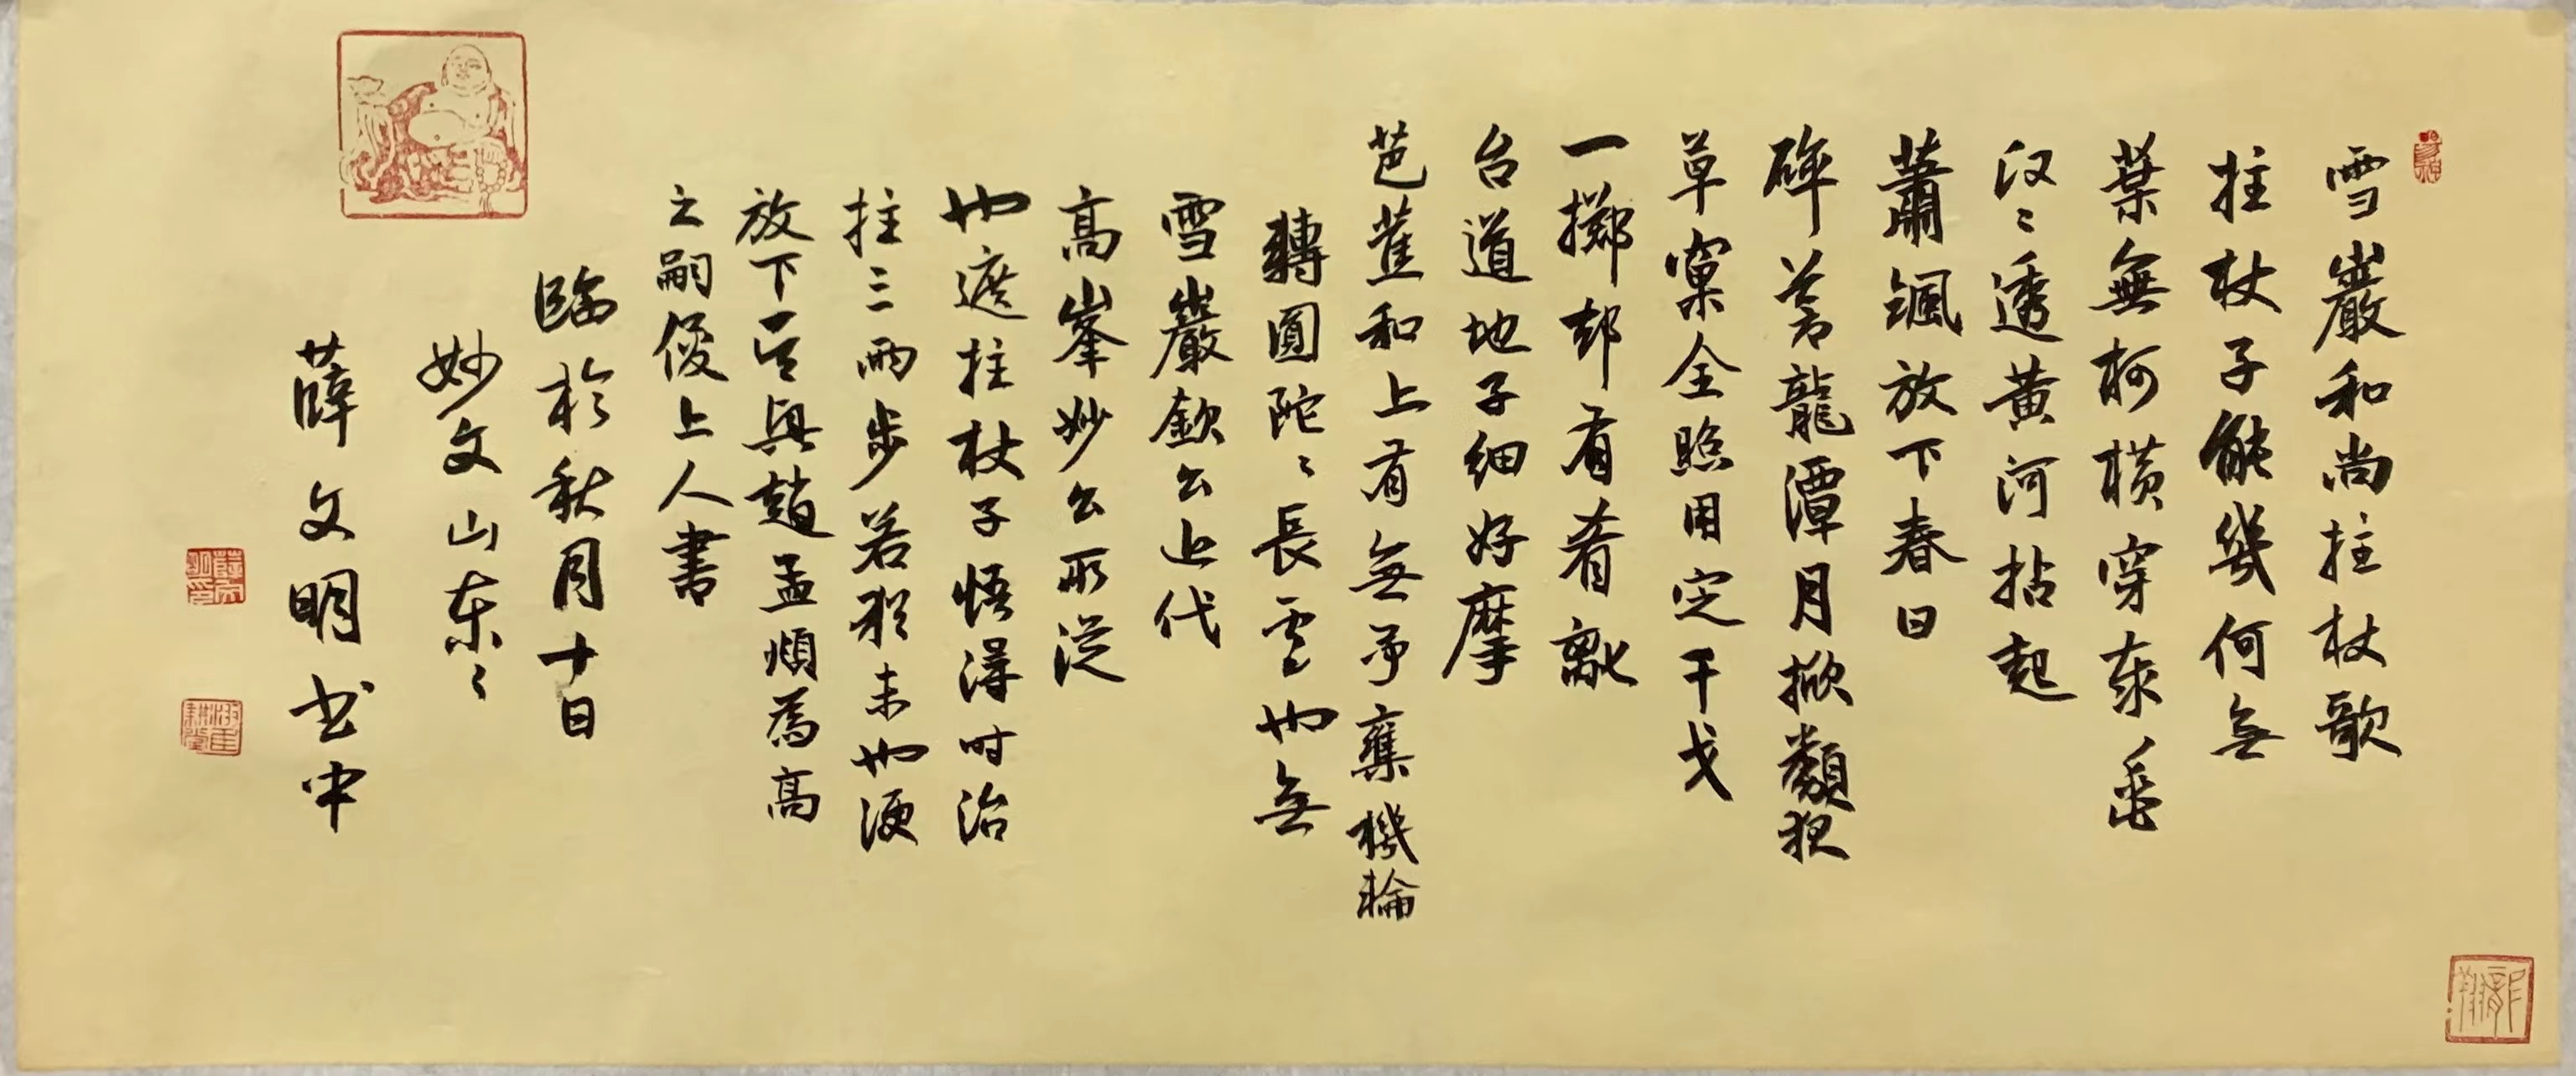 雪巖和尚拄杖歌
拄杖子能幾何無
葉無柯橫穿泰垂
汉〻透黃河拈起
蕭颯放下春日
碎蒼龍潭月掀類狠
草窠全照用定干戈
一擲却有肴亂
台道地子細好摩
芭蕉和上有無爭奪機輪
轉圓陀〻長靈地無
雪巖欽公上代
高峯妙公所從
地遮拄杖子悟得时治
拄三兩步若於未地便
放下吳興趙孟頫爲高
之嗣俊上人書
臨於秋月十日
妙文山东〻
薛文明书中